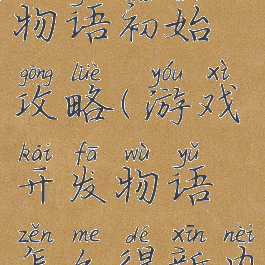 物语初始
gōng lüè yóu xì
攻略(游戏
kāi fā wù yǔ
开发物语
zěn me dé xīn nèi